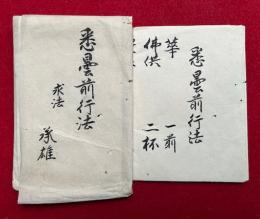 悉曇前行法
求法
承雄
悉曇前行法
華 一前
佛供 二杯